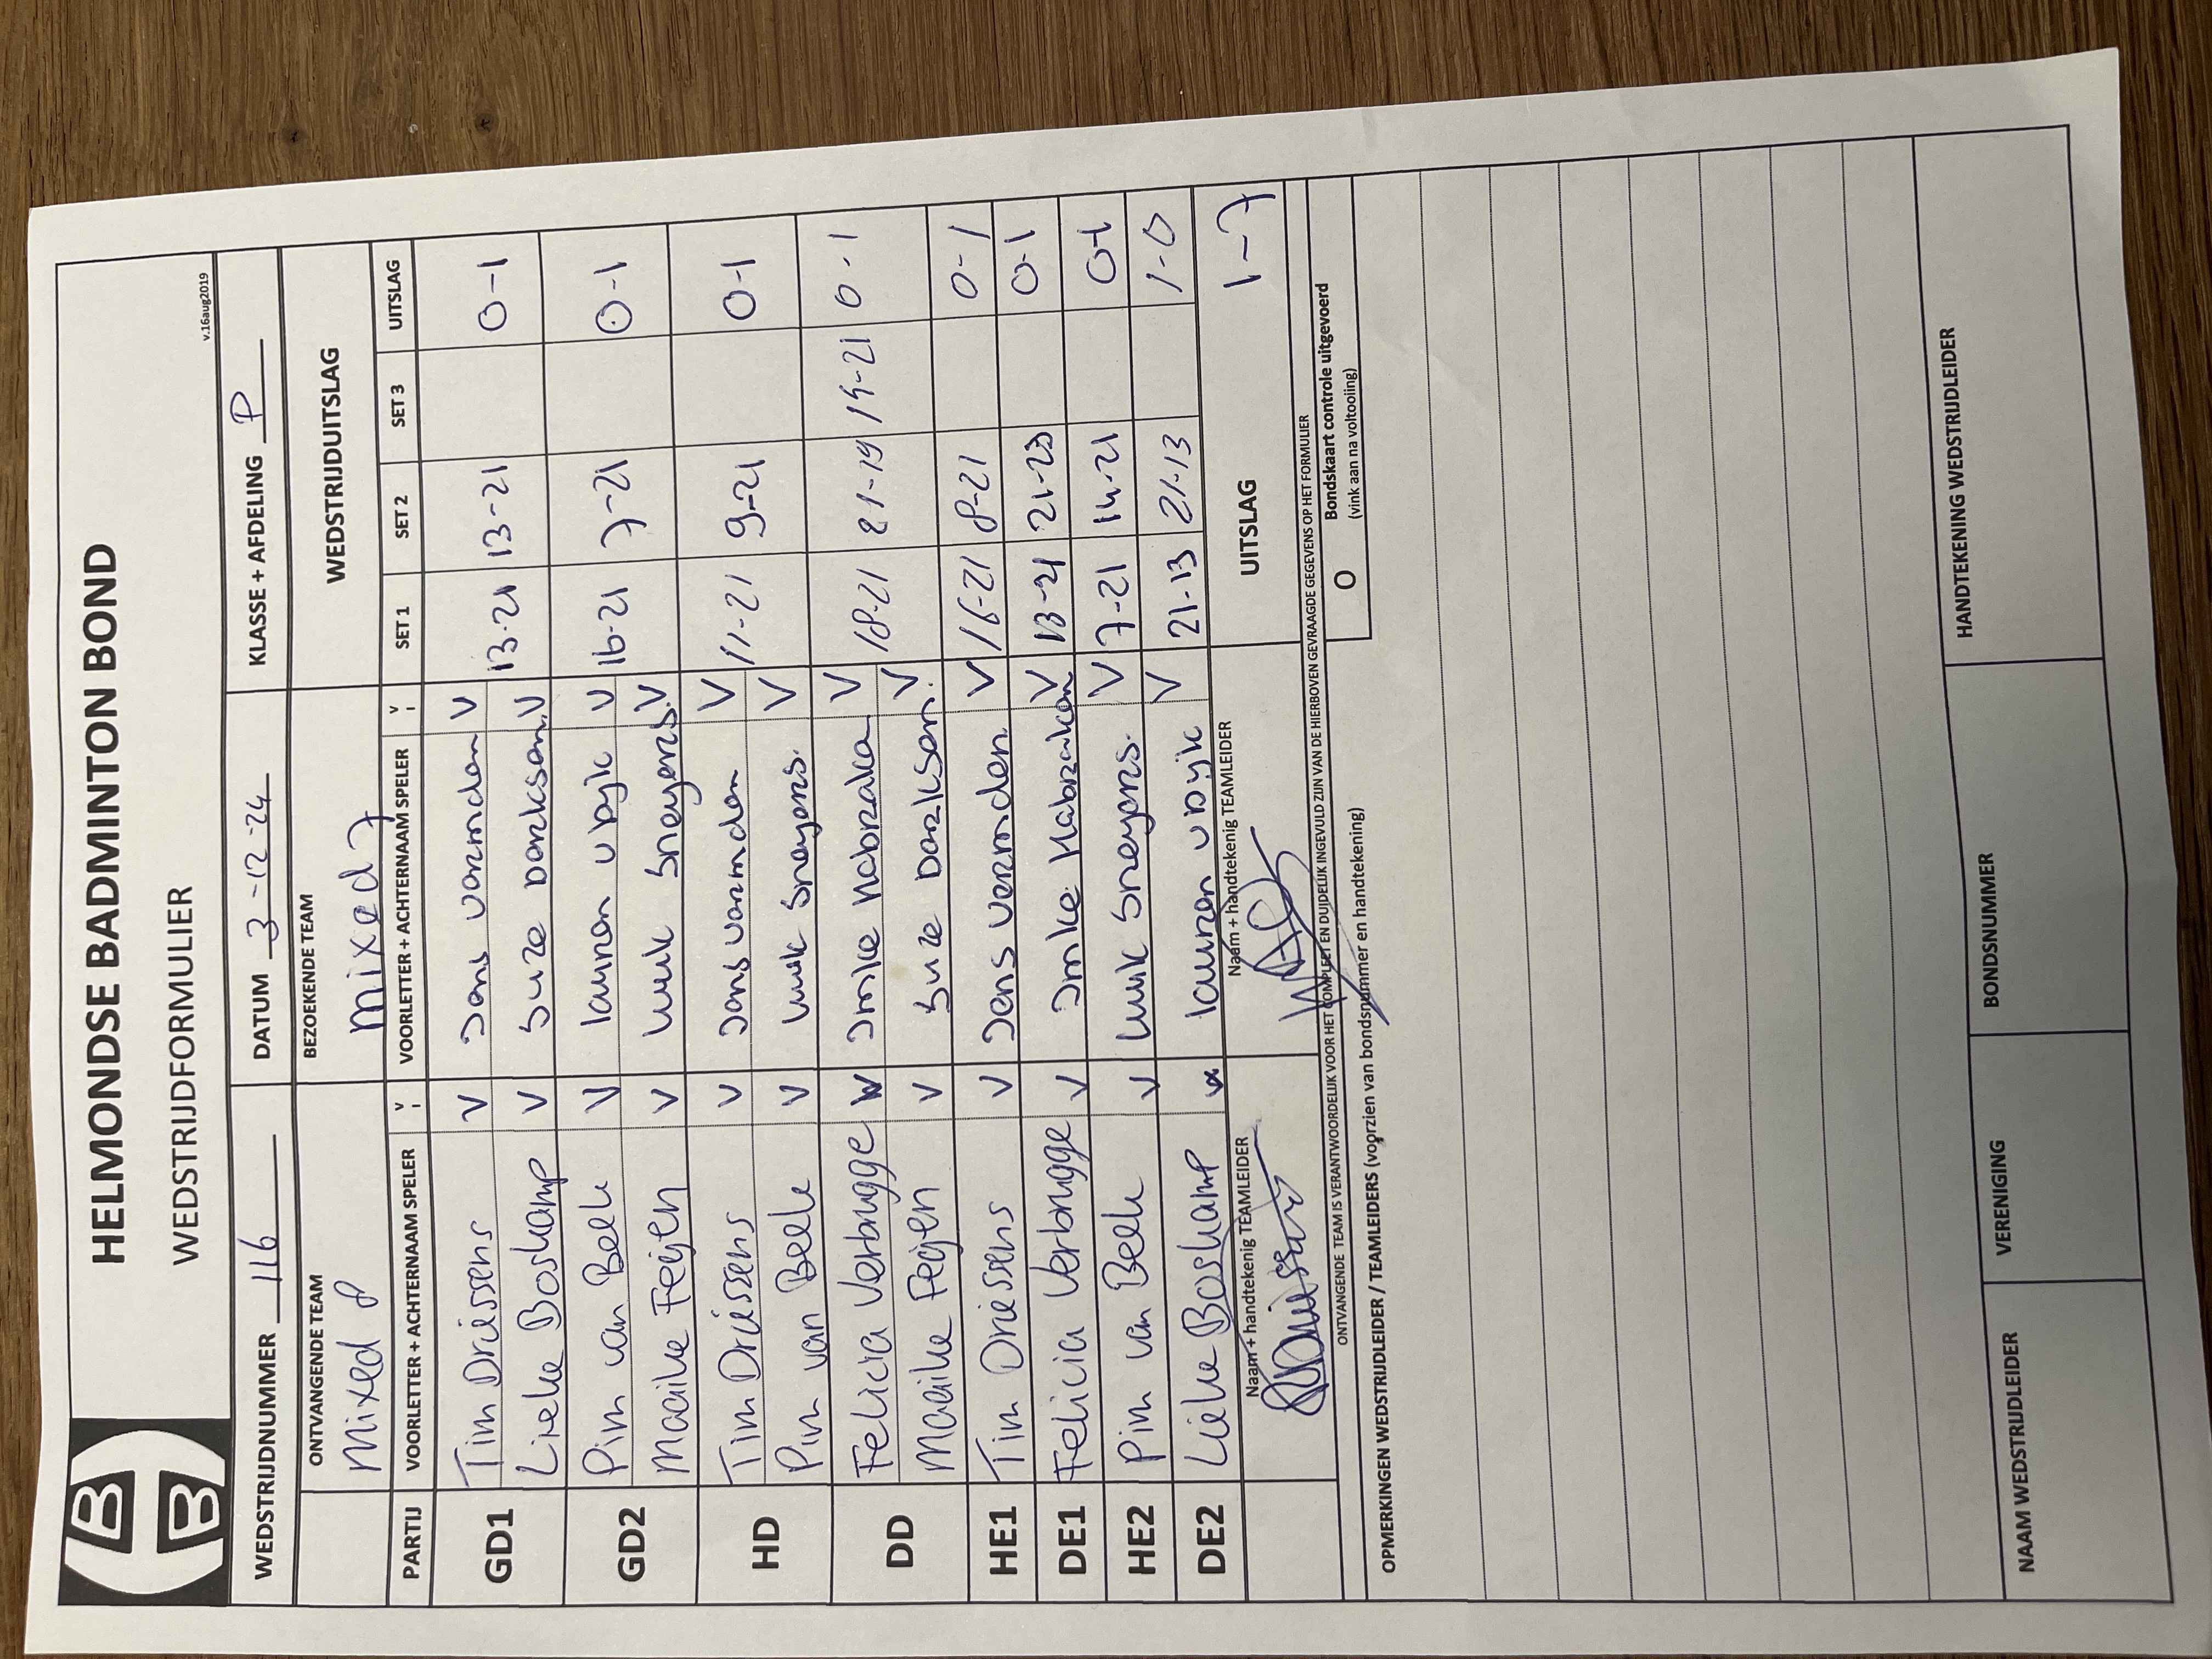 HELMONDSE BADMINTON BOND
WEDSTRIJDFORMULIER
v.16aug2019
WEDSTRIJDNUMMER 116 DATUM 3-12-24 KLASSE + AFDELING P
ONTVANGENDE TEAM BEZOEKENDE TEAM WEDSTRIJDUITSLAG
Mixed 8 Mixed 7
PARTIJ VOORLETTER + ACHTERNAAM SPELER V VOORLETTER + ACHTERNAAM SPELER V SET 1 SET 2 SET 3 UITSLAG
GD1 Tim Driessens V Jens Vermden V 13-21 13-21 0-1
Lieke Boskamp V Suze Derksen V
GD2 Pim van Beek V Lauren v Dijk V 16-21 7-21 0-1
Maaike Feijen V Luuk Sneyers. V
HD Tim Driessens V Jens Vermden V 11-21 9-21 0-1
Pim van Beek V Luuk Sneyers. V
DD Felicia Verbrugge V Imke Habraken V 18-21 21-19 19-21 0-1
Maaike Feijen V Suze Derksen V
HE1 Tim Driessens V Jens Vermden. V 16-21 8-21 0-1
DE1 Felicia Verbrugge V Imke Habraken V 13-21 21-23 0-1
HE2 Pim van Beek V Luuk Sneyers. V 7-21 14-21 0-1
DE2 Lieke Boskamp V Lauren v Dijk V 21-13 21-13 1-0
Naam + handtekenig TEAMLEIDER Naam + handtekenig TEAMLEIDER UITSLAG 1-7
ONTVANGENDE TEAM IS VERANTWOORDELIJK VOOR HET COMPLEET EN DUIDELIJK INGEVULD ZIJN VAN DE HIERBOVEN GEVRAAGDE GEGEVENS OP HET FORMULIER
OPMERKINGEN WEDSTRIJDLEIDER / TEAMLEIDERS (voorzien van bondsnummer en handtekening)
O Bondskaart controle uitgevoerd
(vink aan na voltooiing)
NAAM WEDSTRIJDLEIDER VERENIGING BONDSNUMMER HANDTEKENING WEDSTRIJDLEIDER